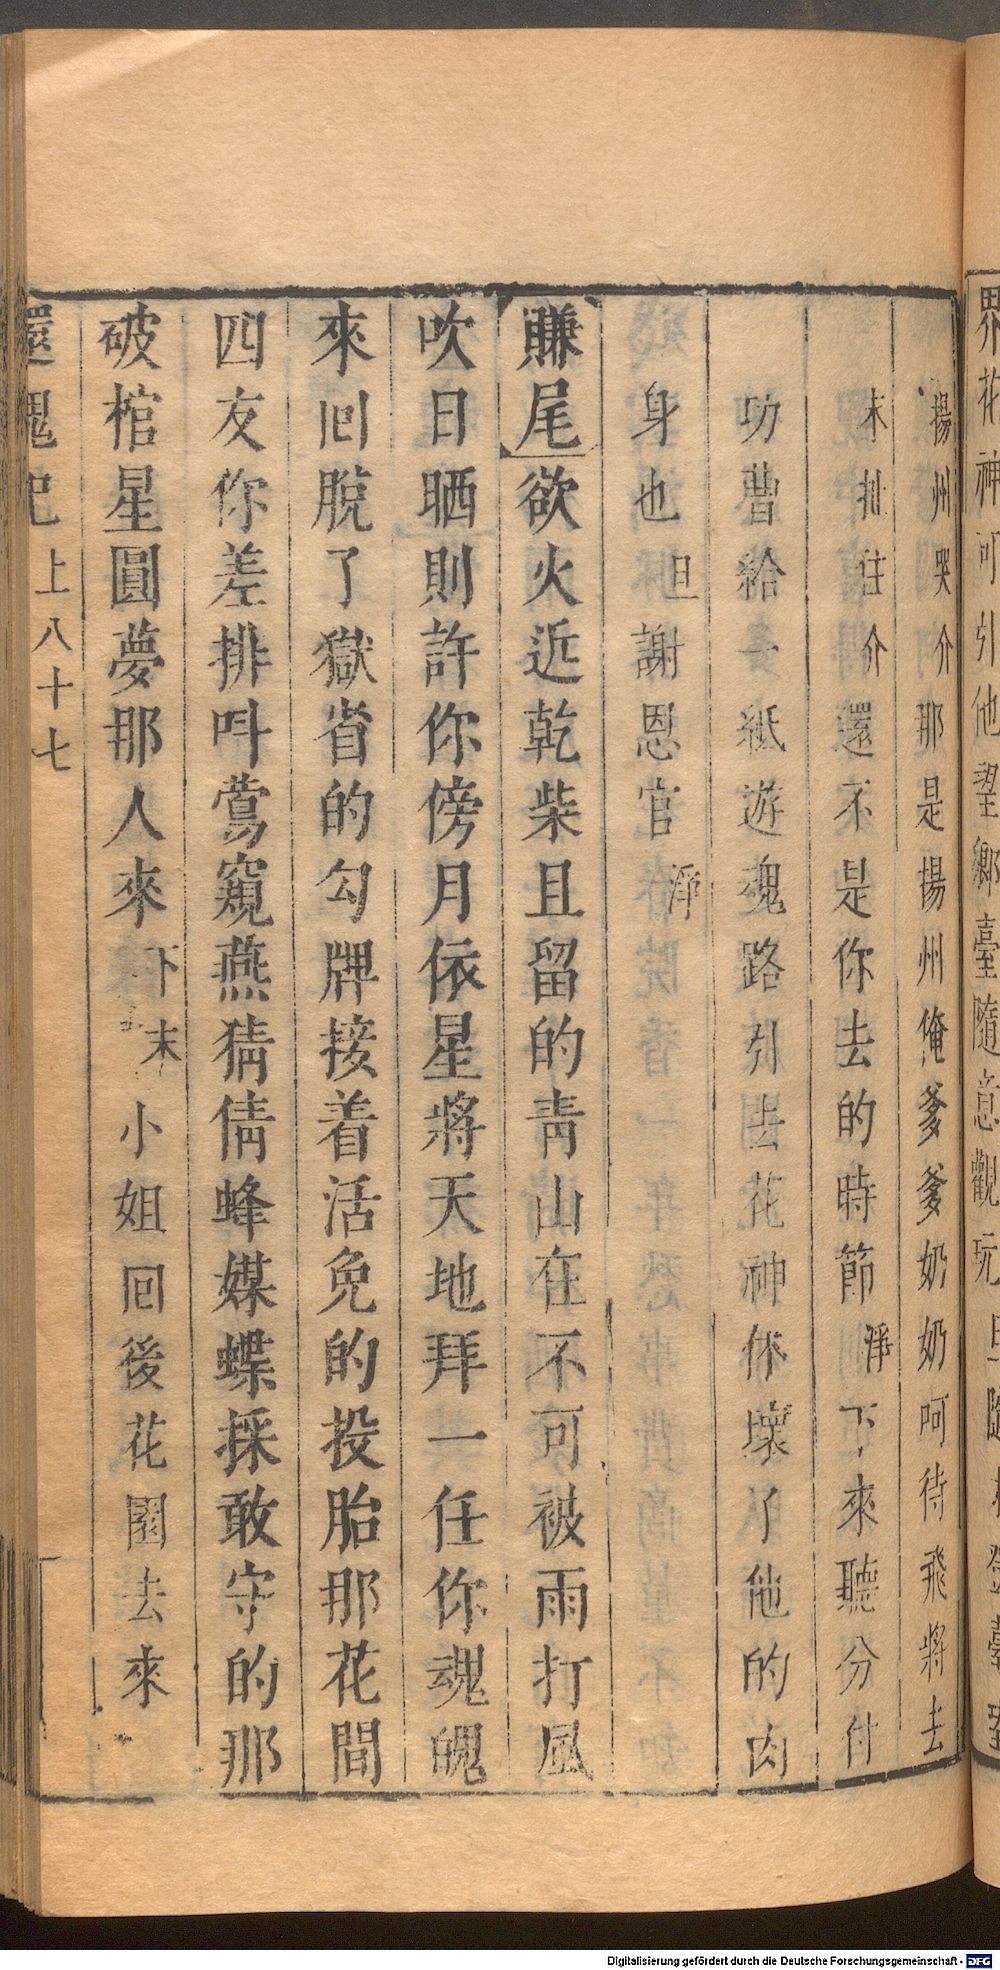 界花神可引他望鄉臺隨意觀玩旦隨末登臺望
揚州哭介那是揚州俺爹爹奶奶呵待飛將去
末扯住介還不是你去的時節淨下來聽分付
功曹給一紙遊魂路引去花神休壞了他的肉
身也旦謝恩官淨
賺尾欲火近乾柴且留的青山在不可被雨打風
吹日晒則許你傍月依星將天地拜一任你魂魄
來回脫了獄省的勾牌接着活免的投胎那花間
四友你差排呌鶯窺燕猜倩蜂媒蝶採敢守的那
破棺星圓夢那人來下末小姐回後花園去來
還魂記 上 八十七
Digitalisierung gefördert durch die Deutsche Forschungsgemeinschaft - DFG